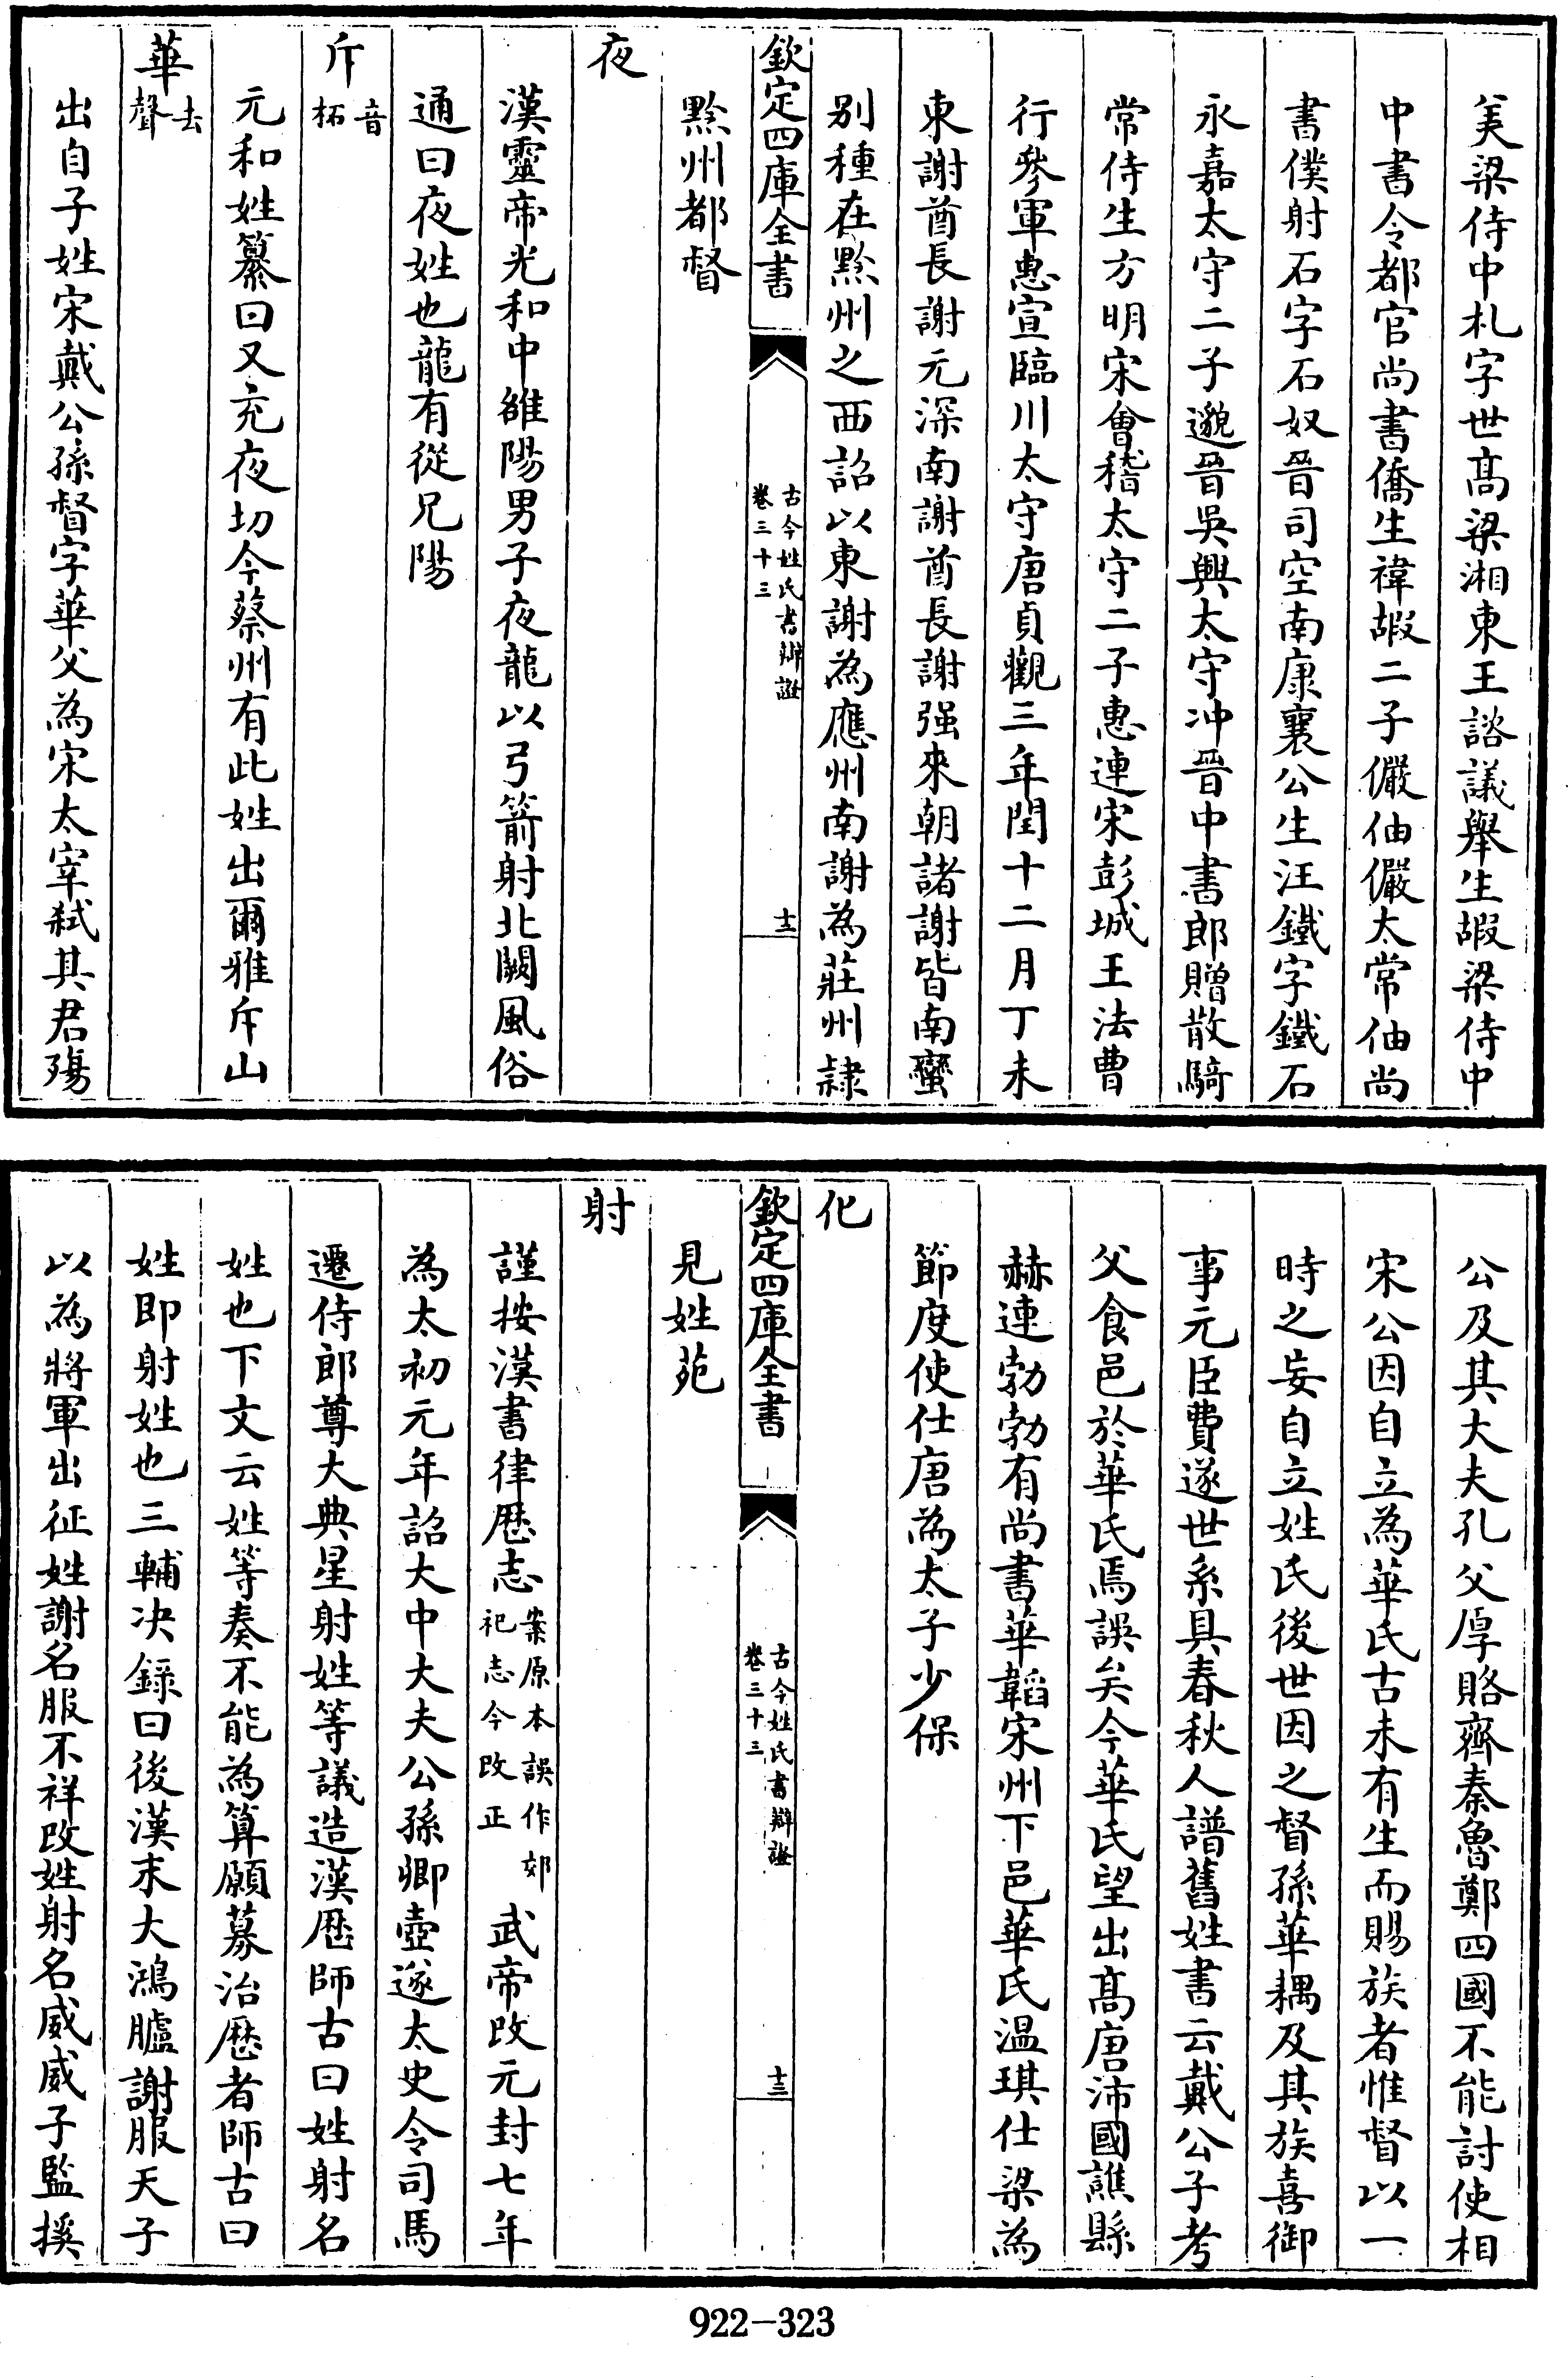 羙梁侍中札字世髙梁湘東王諮議舉生嘏梁侍中
中書令都官尚書僑生禕嘏二子儼伷儼太常伷尚
書僕射石字石奴晉司空南康襄公生汪鐵字鐵石
永嘉太守二子邈晉吳興太守冲晉中書郎贈散騎
常侍生方明宋會稽太守二子惠連宋彭城王法曹
行參軍惠宣臨川太守唐貞觀三年閏十二月丁未
東謝酋長謝元深南謝酋長謝强來朝諸謝皆南蠻
别種在黔州之西詔以東謝為應州南謝為莊州隷
欽定四庫全書
古今姓氏書辯證
卷三十三
十二
黔州都督
夜
漢靈帝光和中雒陽男子夜龍以弓箭射北闕風俗
通曰夜姓也龍有從兄陽
斥音柘
元和姓纂曰又充夜切今蔡州有此姓出爾雅斥山
華去聲
出自子姓宋戴公孫督字華父為宋太宰弑其君殤
公及其大夫孔父厚賂齊秦魯鄭四國不能討使相
宋公因自立為華氏古未有生而賜族者惟督以一
時之妄自立姓氏後世因之督孫華耦及其族喜御
事元臣費遂世系具春秋人譜舊姓書云戴公子考
父食邑於華氏焉誤矣今華氏望出髙唐沛國譙縣
赫連勃勃有尚書華韜宋州下邑華氏温琪仕梁為
節度使仕唐為太子少保
化
欽定四庫全書
古今姓氏書辯證
卷三十三
十三
見姓苑
射
謹按漢書律厯志案原本誤作郊祀志今改正武帝改元封七年
為太初元年詔大中大夫公孫卿壺遂太史令司馬
遷侍郎尊大典星射姓等議造漢厯師古曰姓射名
姓也下文云姓等奏不能為算願募治厯者師古曰
姓即射姓也三輔决録曰後漢末大鴻臚謝服天子
以為將軍出征姓謝名服不祥改姓射名威威子監援
922-323